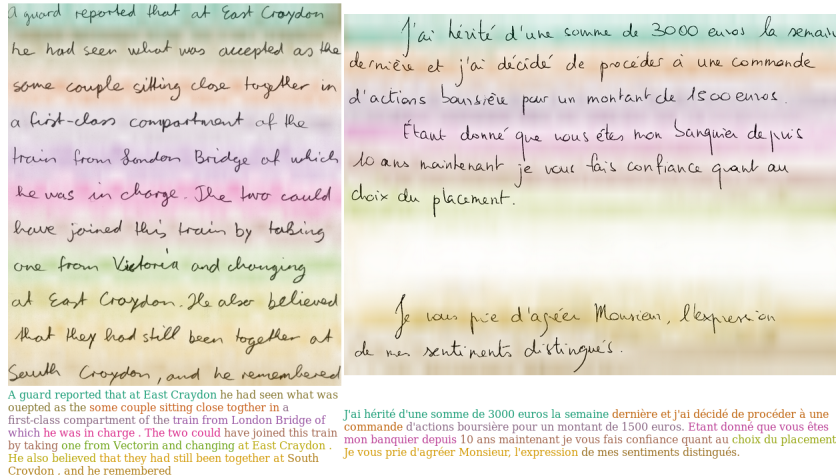 a guard reported that at East Croydon
he had seen what was accepted as the
some couple sitting close together in
a first-class compartment of the
train from London Bridge of which
he was in charge. The two could
have joined this train by taking
one from Victoria and changing
at East Croydon. He also believed
that they had still been together at
South Croydon, and he remembered
A guard reported that at East Croydon he had seen what was
ouepted as the some couple sitting close togther in a
first-class compartment of the train from London Bridge of
which he was in charge . The two could have joined this train
by taking one from Vectorin and changing at East Croydon .
He also believed that they had still been together at South
Croydon . and he remembered
J'ai hérité d'une somme de 3000 euros la semain
dernière et j'ai décidé de procéder à une commande
d'actions boursière pour un montant de 1500 euros.
Étant donné que vous êtes mon banquier depuis
10 ans maintenant je vous fais confiance quant au
choix du placement.
Je vous prie d'agréer Monsieur, l'expression
de mes sentiments distingués.
J'ai hérité d'une somme de 3000 euros la semaine dernière et j'ai décidé de procéder à une
commande d'actions boursière pour un montant de 1500 euros. Etant donné que vous êtes
mon banquier depuis 10 ans maintenant je vous fais confiance quant au choix du placement
Je vous prie d'agréer Monsieur, l'expression de mes sentiments distingués.